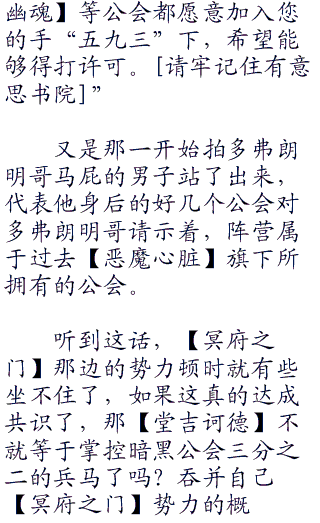 幽魂】等公会都愿意加入您
的手“五九三”下，希望能
够得打许可。[请牢记住有意
思书院]”
又是那一开始拍多弗朗
明哥马屁的男子站了出来，
代表他身后的好几个公会对
多弗朗明哥请示着，阵营属
于过去【恶魔心脏】旗下所
拥有的公会。
听到这话，【冥府之
门】那边的势力顿时就有些
坐不住了，如果这真的达成
共识了，那【堂吉诃德】不
就等于掌控暗黑公会三分之
二的兵马了吗？吞并自己
【冥府之门】势力的概